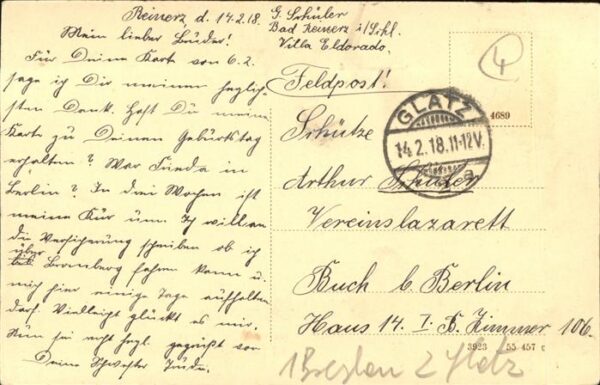 Reinerz, d. 14.2.18.
Mein lieber Bruder!
Für Deine Karte vom 6.2.
sage ich Dir meinen herzlich-
sten Dank. Hast Du meine
Karte zu Deinem Geburtstag
erhalten? War Frieda in
Berlin? In drei Wochen ist
meine Kur um. Ich will an
die Versicherung schreiben ob ich
über Bromberg fahren kann u.
mich hier einige Tage aufhalten
darf. Vielleicht glückt es mir.
Nun sei recht hrzl. gegrüßt von
Deine Schwester
G. Schüler
Bad Reinerz i/Schl.
Villa Eldorado.
Feldpost!
4
4689
GLATZ
14.2.18.11-12V.
a
Schütze
Arthur Schüler
Vereinslazarett
Buch b. Berlin
Haus 14. I. B. Zimmer 106.
3923 55 457
1 Breslau 2 Glatz